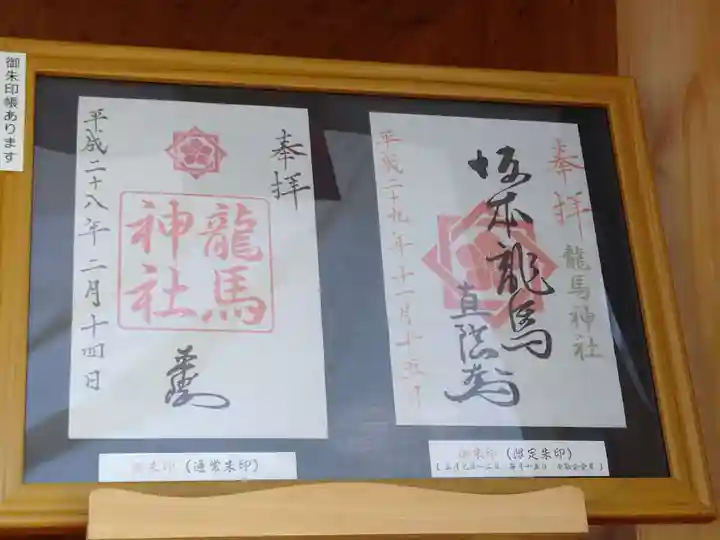 御朱印帳あります
奉拝
龍馬
神社
平成二十八年二月十四日
奉拝
龍馬神社
坂本龍馬
直陰
平成二十九年十一月十五日
御朱印（通常朱印）
御朱印（限定朱印）